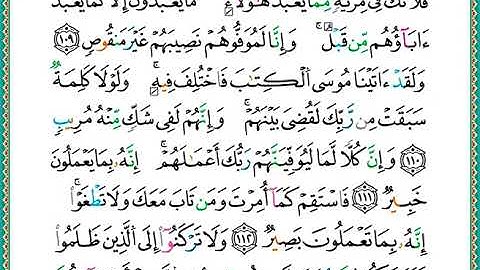 فَلَا تَكُ فِي مِرْيَةٍ مِّمَّا يَعْبُدُ هَٰٓؤُلَآءِ ۚ مَا يَعْبُدُونَ إِلَّا كَمَا يَعْبُدُ
ءَابَآؤُهُم مِّن قَبْلُ ۚ وَإِنَّا لَمُوَفُّوهُمْ نَصِيبَهُمْ غَيْرَ مَنقُوصٍ ١٠٩
وَلَقَدْ ءَاتَيْنَا مُوسَى ٱلْكِتَٰبَ فَٱخْتُلِفَ فِيهِ ۚ وَلَوْلَا كَلِمَةٌ
سَبَقَتْ مِن رَّبِّكَ لَقُضِىَ بَيْنَهُمْ ۚ وَإِنَّهُمْ لَفِى شَكٍّ مِّنْهُ مُرِيبٍ
١١٠ وَإِنَّ كُلًّا لَّمَا لَيُوَفِّيَنَّهُمْ رَبُّكَ أَعْمَٰلَهُمْ ۚ إِنَّهُۥ بِمَا يَعْمَلُونَ
خَبِيرٌ ١١١ فَٱسْتَقِمْ كَمَآ أُمِرْتَ وَمَن تَابَ مَعَكَ وَلَا تَطْغَوْا۟ ۚ
إِنَّهُۥ بِمَا تَعْمَلُونَ بَصِيرٌ ١١٢ وَلَا تَرْكَنُوٓا۟ إِلَى ٱلَّذِينَ ظَلَمُوا۟